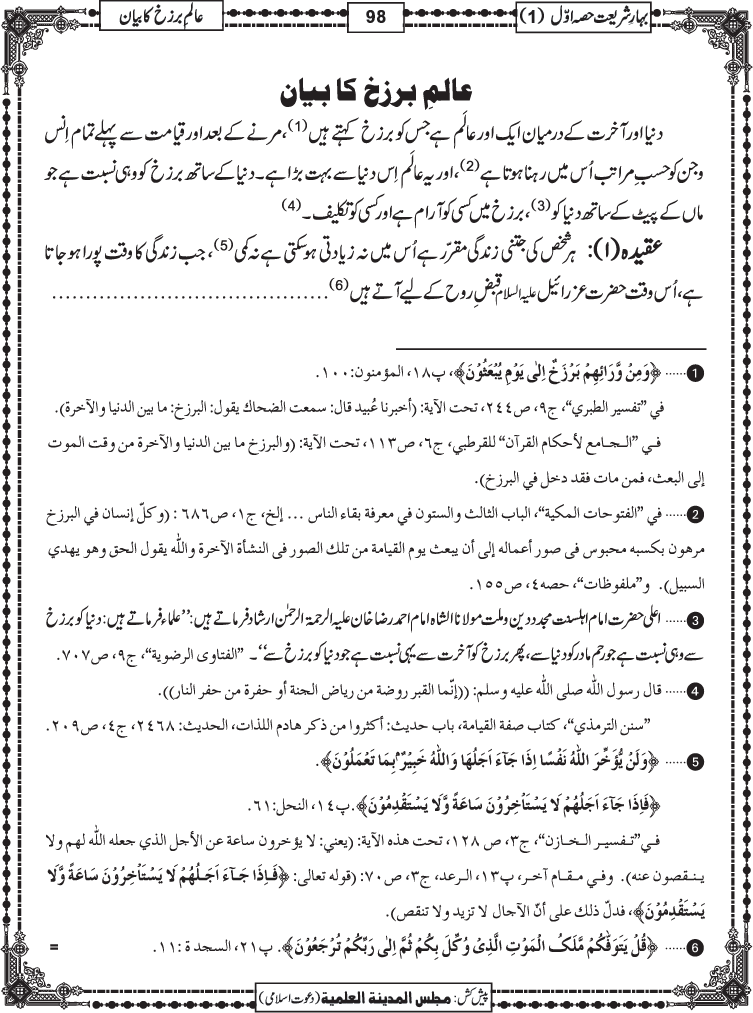 بہارِشریعت حصہ اوّل (1)
98
عالم برزخ کا بیان
عالمِ برزخ کا بیان
دنیا اور آخرت کے درمیان ایک اور عالَم ہے جس کو برزخ کہتے ہیں(1)، مرنے کے بعد اور قیامت سے پہلے تمام اِنس
وجن کو حسبِ مراتب اُس میں رہنا ہوتا ہے(2)، اور یہ عالَم اِس دنیا سے بہت بڑا ہے۔ دنیا کے ساتھ برزخ کو وہی نسبت ہے جو
ماں کے پیٹ کے ساتھ دنیا کو(3)، برزخ میں کسی کو آرام ہے اور کسی کو تکلیف۔(4)
عقیدہ (۱): ہر شخص کی جتنی زندگی مقرّر ہے اُس میں نہ زیادتی ہوسکتی ہے نہ کمی(5)، جب زندگی کا وقت پورا ہو جاتا
ہے، اُس وقت حضرت عزرائیل علیہ السلام قبضِ روح کے لیے آتے ہیں(6)........................................
❶...... ﴿وَمِنْ وَّرَآئِهِمْ بَرْزَخٌ اِلٰى يَوْمِ يُبْعَثُوْنَ﴾، پ١٨، المؤمنون: ١٠٠.
في "تفسير الطبري"، ج٩، ص٢٤٤، تحت الآية: (أخبرنا عُبيد قال: سمعت الضحاك يقول: البرزخ: ما بين الدنيا والآخرة).
فـي "الـجـامع لأحكام القرآن" للقرطبي، ج٦، ص١١٣، تحت الآية: (والبرزخ ما بين الدنيا والآخرة من وقت الموت
إلى البعث، فمن مات فقد دخل في البرزخ).
❷...... في "الفتوحات المكية"، الباب الثالث والستون في معرفة بقاء الناس ... إلخ، ج١، ص٦٨٦ : (وكلّ إنسان في البرزخ
مرهون بكسبه محبوس في صور أعماله إلى أن يبعث يوم القيامة من تلك الصور في النشأة الآخرة والله يقول الحق وهو يهدي
السبيل). و"ملفوظات"، حصه٤، ص١٥٥.
❸...... اعلی حضرت امام اہلسنت مجدد دین و ملت مولانا الشاہ امام احمد رضا خان علیہ الرحمۃ الرحمٰن ارشاد فرماتے ہیں: ''علماء فرماتے ہیں: دنیا کو برزخ
سے وہی نسبت ہے جو رحم مادر کو دنیا سے، پھر برزخ کو آخرت سے یہی نسبت ہے جو دنیا کو برزخ سے''۔ "الفتاوى الرضوية"، ج٩، ص٧٠٧.
❹...... قال رسول الله صلى الله عليه وسلم: ((إنّما القبر روضة من رياض الجنة أو حفرة من حفر النار)).
"سنن الترمذي"، كتاب صفة القيامة، باب حديث: أكثروا من ذكر هادم اللذات، الحديث: ٢٤٦٨، ج٤، ص٢٠٩.
❺...... ﴿وَلَنْ يُّؤَخِّرَ اللّٰهُ نَفْسًا اِذَا جَآءَ اَجَلُهَا وَاللّٰهُ خَبِيْرٌۢ بِمَا تَعْمَلُوْنَ﴾.
﴿فَاِذَا جَآءَ اَجَلُهُمْ لَا يَسْتَاْخِرُوْنَ سَاعَةً وَّلَا يَسْتَقْدِمُوْنَ﴾. پ١٤، النحل: ٦١.
فـي"تـفسيـر الـخازن"، ج٣، ص١٢٨، تحت هذه الآية: (يعني: لا يؤخرون ساعة عن الأجل الذي جعله الله لهم ولا
يـنـقصون عنه). وفـي مـقـام آخـر، پ١٣، الـرعد، ج٣، ص٧٠: (قوله تعالى: ﴿فَـاِذَا جَـآءَ اَجَـلُهُـمْ لَا يَسْتَاْخِرُوْنَ سَاعَةً وَّلَا
يَسْتَقْدِمُوْنَ﴾، فدلّ ذلك على أنّ الآجال لا تزيد ولا تنقص).
❻...... ﴿قُلْ يَتَوَفّٰىكُمْ مَّلَكُ الْمَوْتِ الَّذِىْ وُكِّلَ بِكُمْ ثُمَّ اِلٰى رَبِّكُمْ تُرْجَعُوْنَ﴾. پ٢١، السجدة: ١١. =
پیش کش: مجلس المدينة العلمية (دعوت اسلامی)